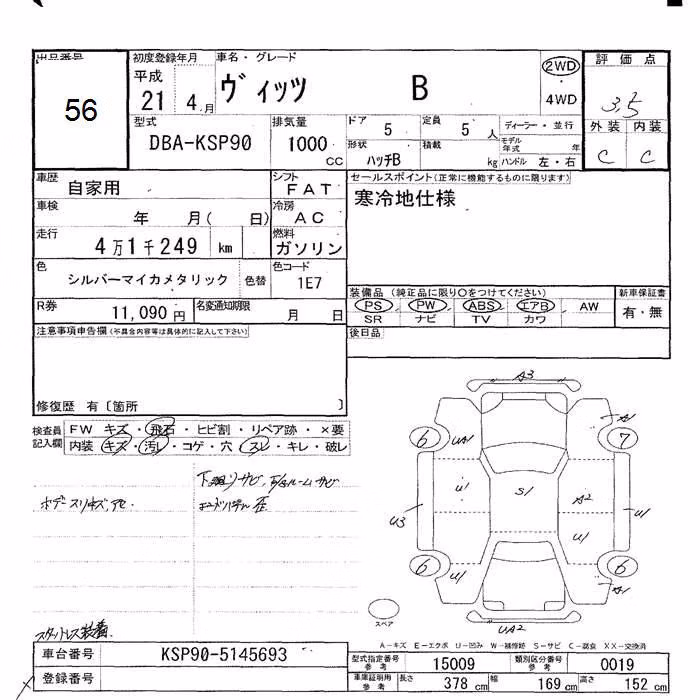 出品番号 初度登録年月 車名・グレード 評価点
56 平成 21 4月 ヴィッツ B 2WD 4WD 3.5
外装 内装
C C
型式 排気量 ドア 定員 ディーラー・並行
DBA-KSP90 1000 CC 5 5 人 モデル年式 年
形状 積載
ハッチB kg ハンドル 左・右
車歴 自家用 シフト FAT セールスポイント(正常に機能するものに限ります)
寒冷地仕様
車検 年 月( 日) 冷房 AC
走行 4万1千249 km 燃料 ガソリン
色 シルバーマイカメタリック 色替 色コード 1E7
装備品 (純正品に限り〇をつけてください) 新車保証書
PS PW ABS エアB AW 有・無
SR ナビ TV カワ
R券 11,090円 名変通知期限 月 日
後日品
注意事項申告欄(不具合内容等は具体的に記入して下さい)
修復歴 有〔箇所 〕
検査員記入欄 FW キズ・飛石・ヒビ割・リペア跡・×要
内装 キズ・汚レ・コゲ・穴・スレ・キレ・破レ
下廻リサビ
ボデースリキズ,
スタットレス装着
A3
A1
6 UA1 7
U1 S1 A2
U3 U1
U1
6 U1 6
A1
UA2
スペア
A-キズ E-エクボ U-凹み W-補修跡 S-サビ C-腐食 XX-交換済
車台番号 KSP90-5145693
登録番号
型式指定番号参考 15009 類別区分番号参考 0019
車庫証明用参考 長さ 378 cm 幅 169 cm 高さ 152 cm